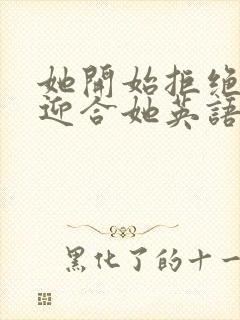 她開始拒絕
迎合她英語
黑化了的十一